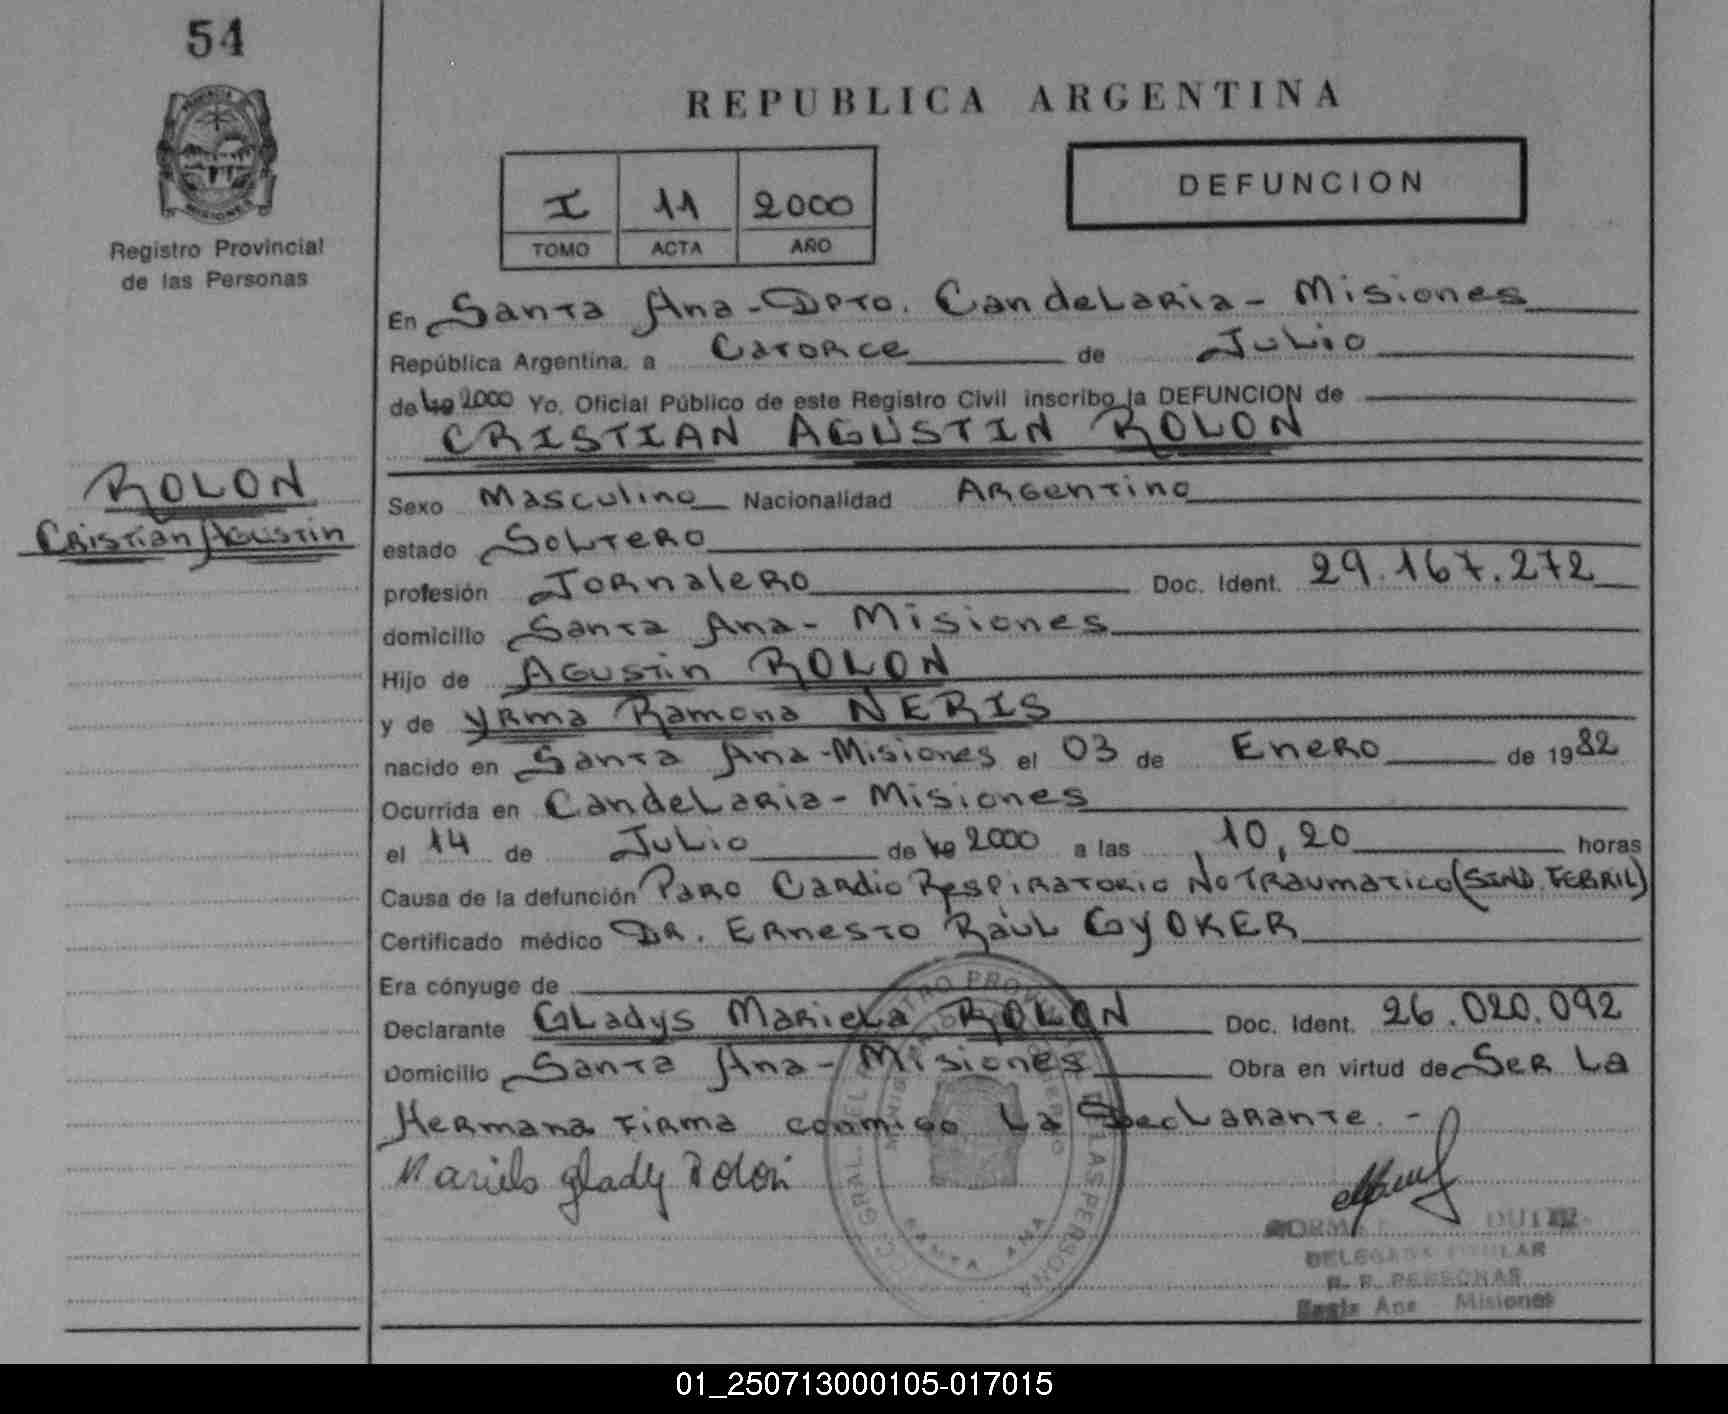 54
PROVINCIA
MISIONES
Registro Provincial
de las Personas
REPUBLICA ARGENTINA
I 11 2000
TOMO ACTA AÑO
DEFUNCION
En Santa Ana - Dpto. Candelaria - Misiones
República Argentina, a Catorce de Julio
de 19 2000 Yo, Oficial Público de este Registro Civil inscribo la DEFUNCION de
CRISTIAN AGUSTIN ROLON
ROLON
Cristian Agustin
Sexo Masculino Nacionalidad Argentino
estado Soltero
profesión Jornalero Doc. Ident. 29.167.272
domicilio Santa Ana - Misiones
Hijo de Agustin ROLON
y de Yrma Ramona NERIS
nacido en Santa Ana - Misiones el 03 de Enero de 1982
Ocurrida en Candelaria - Misiones
el 14 de Julio de 19 2000 a las 10,20 horas
Causa de la defunción Paro Cardio Respiratorio No Traumatico (SIND. FEBRIL)
Certificado médico Dr. Ernesto Raúl GYOKER
Era cónyuge de
Declarante Gladys Mariela ROLON Doc. Ident. 26.020.092
Domicilio Santa Ana - Misiones Obra en virtud de Ser La
Hermana Firma conmigo La Declarante. -
Mariela glady Rolon
SANTA ANA
DELEGADA TITULAR
R. P. PERSONAS
Santa Ana Misiones
01_250713000105-017015